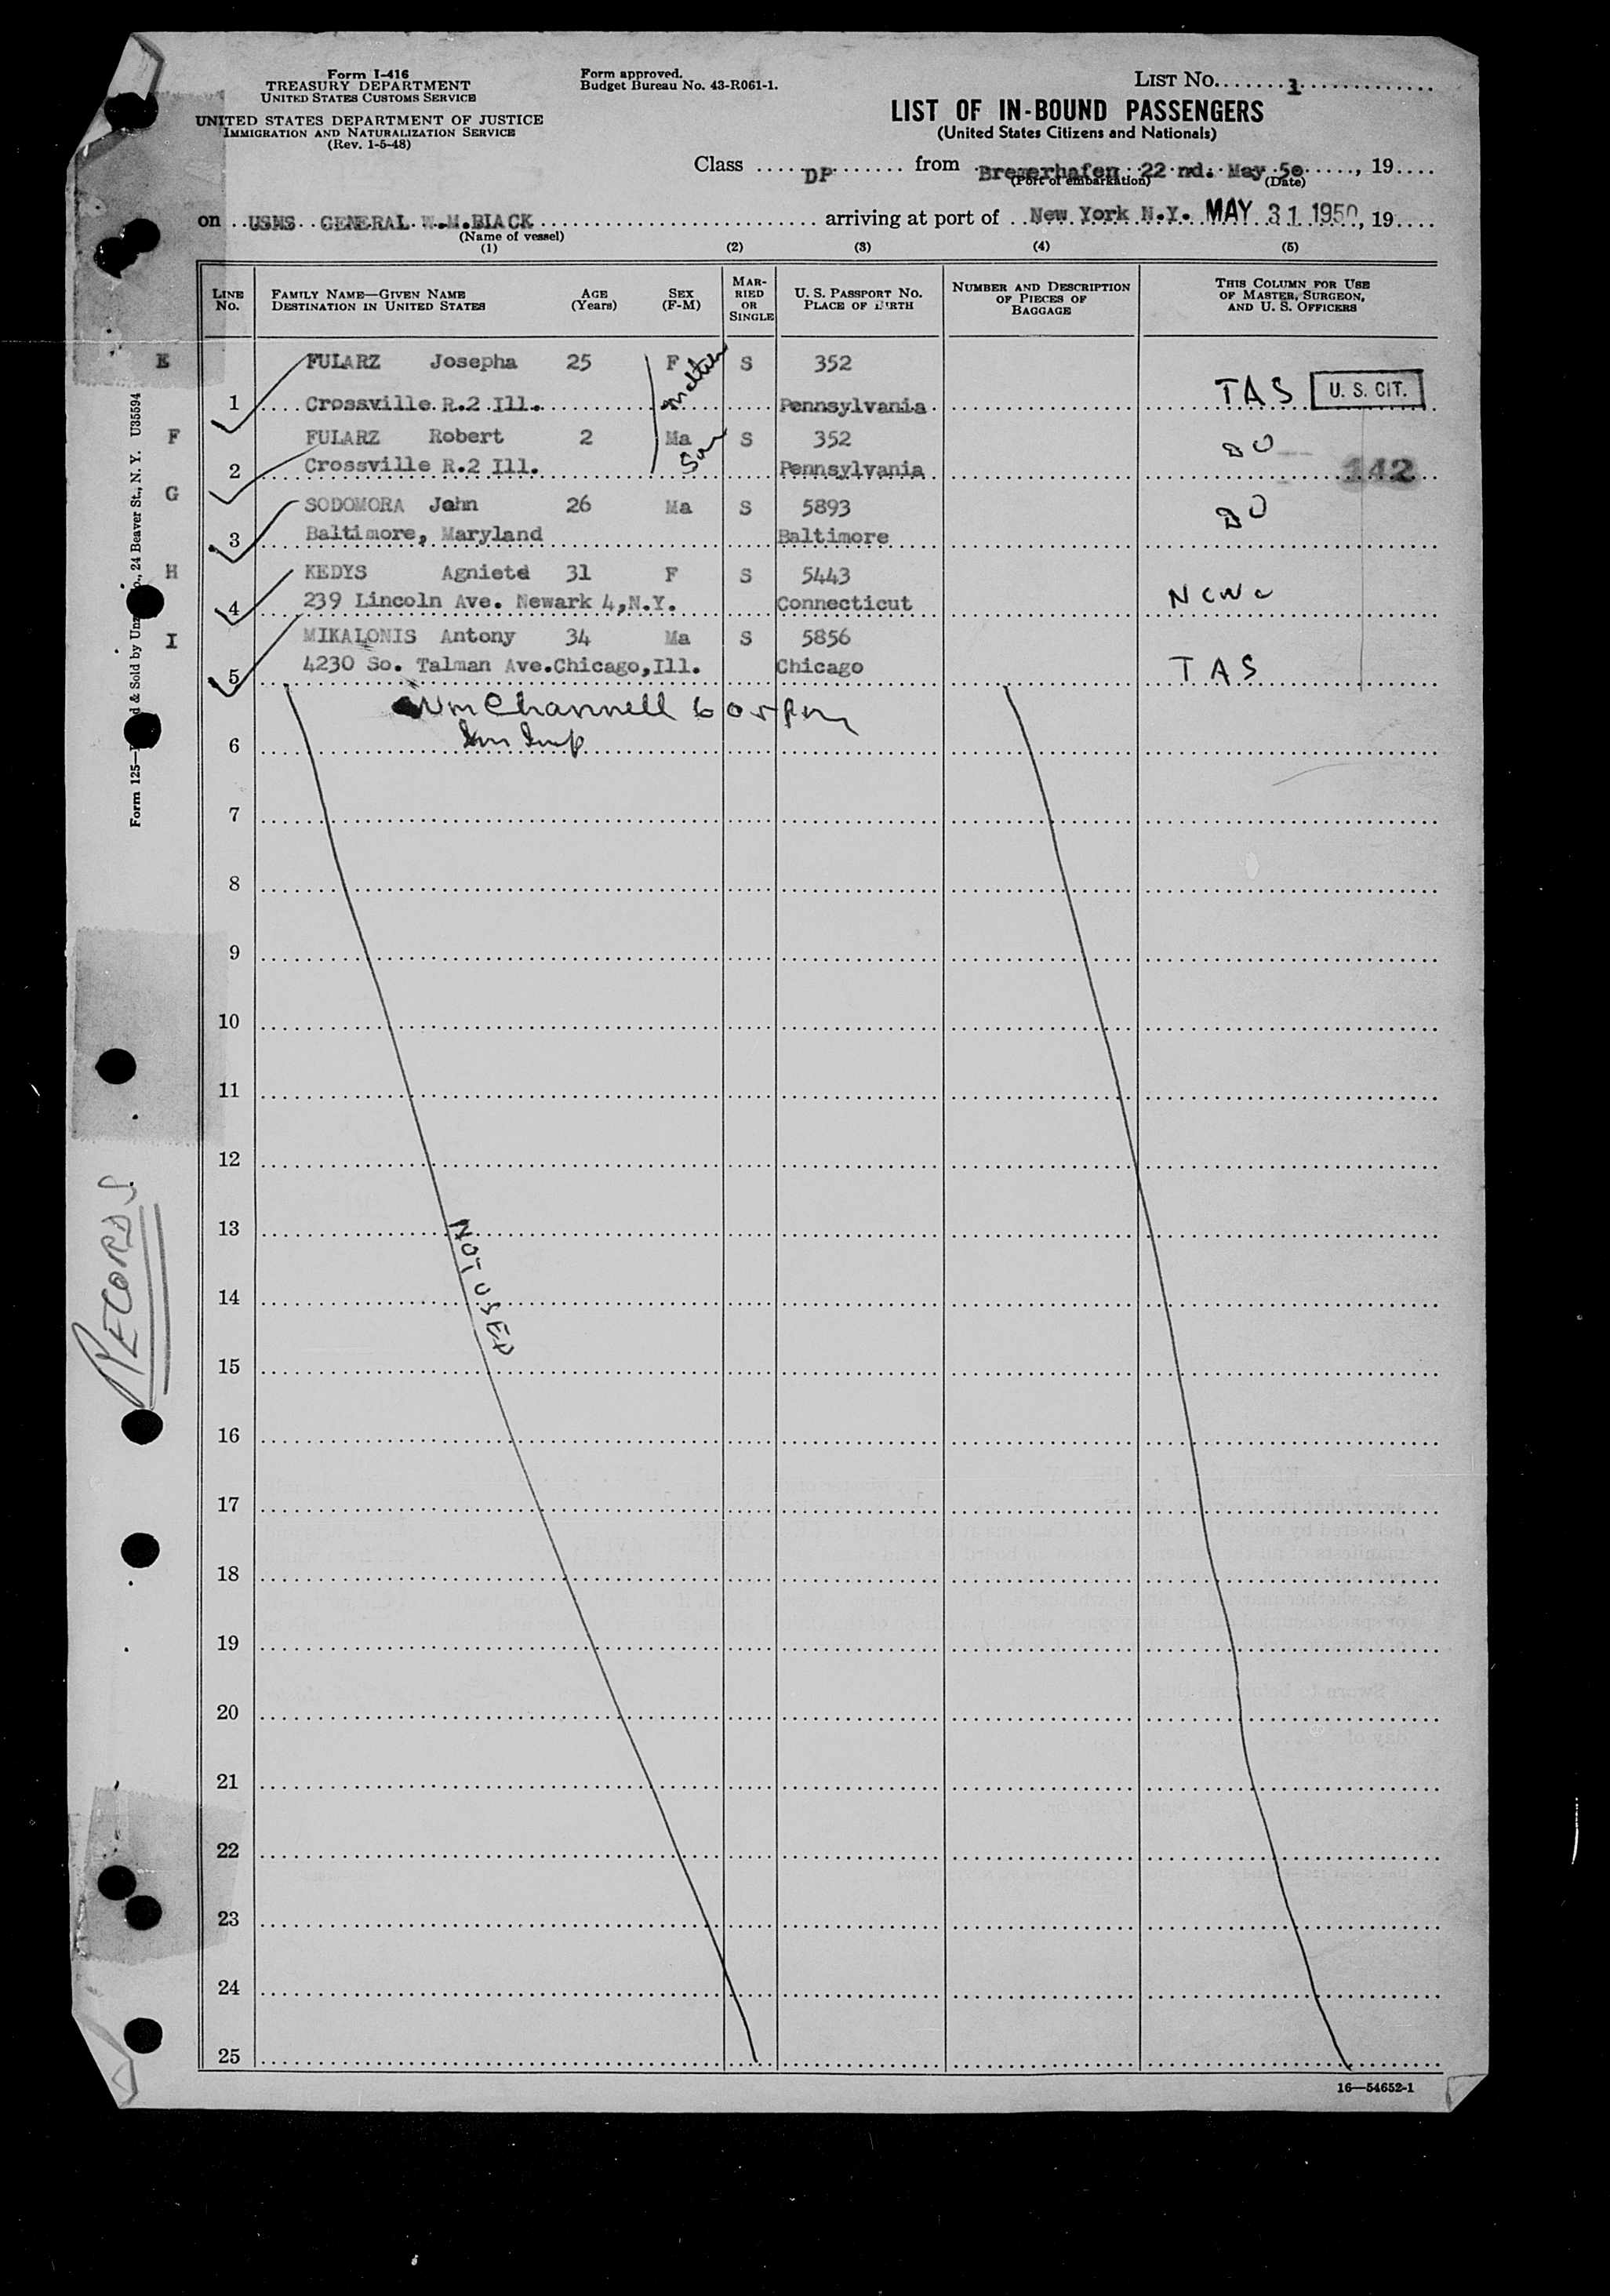 Form I-416
TREASURY DEPARTMENT
UNITED STATES CUSTOMS SERVICE
UNITED STATES DEPARTMENT OF JUSTICE
IMMIGRATION AND NATURALIZATION SERVICE
(Rev. 1-5-48)
Form approved.
Budget Bureau No. 43-R061-1.
LIST No. 1
LIST OF IN-BOUND PASSENGERS
(United States Citizens and Nationals)
Class DP from Bremerhafen 22 nd. May 50, 19
(Port of embarkation) (Date)
on USNS GENERAL W.M.BLACK arriving at port of New York N.Y. MAY 31 1950, 19
(Name of vessel)
(1) (2) (3) (4) (5)
LINE No.
FAMILY NAME—GIVEN NAME
DESTINATION IN UNITED STATES
AGE (Years)
SEX (F-M)
MARRIED OR SINGLE
U. S. PASSPORT NO.
PLACE OF BIRTH
NUMBER AND DESCRIPTION OF PIECES OF BAGGAGE
THIS COLUMN FOR USE OF MASTER, SURGEON, AND U. S. OFFICERS
E FULARZ Josepha 25 F Mother S 352
1 Crossville R.2 Ill. Pennsylvania TAS U. S. CIT.
F FULARZ Robert 2 Ma Son S 352 DO
2 Crossville R.2 Ill. Pennsylvania 142
G SODOMORA John 26 Ma S 5893 DO
3 Baltimore, Maryland Baltimore
H KEDYS Agniete 31 F S 5443
4 239 Lincoln Ave. Newark 4,N.Y. Connecticut NCWC
I MIKALONIS Antony 34 Ma S 5856
5 4230 So. Talman Ave.Chicago,Ill. Chicago TAS
Wm Channell 605 pm
Imm Insp
6
7
8
9
10
11
12
13
14
15
16
17
18
19
20
21
22
23
24
25
NOT USED
RECORDS
Form 125— & Sold by 24 Beaver St., N. Y. U35594
16—54652-1